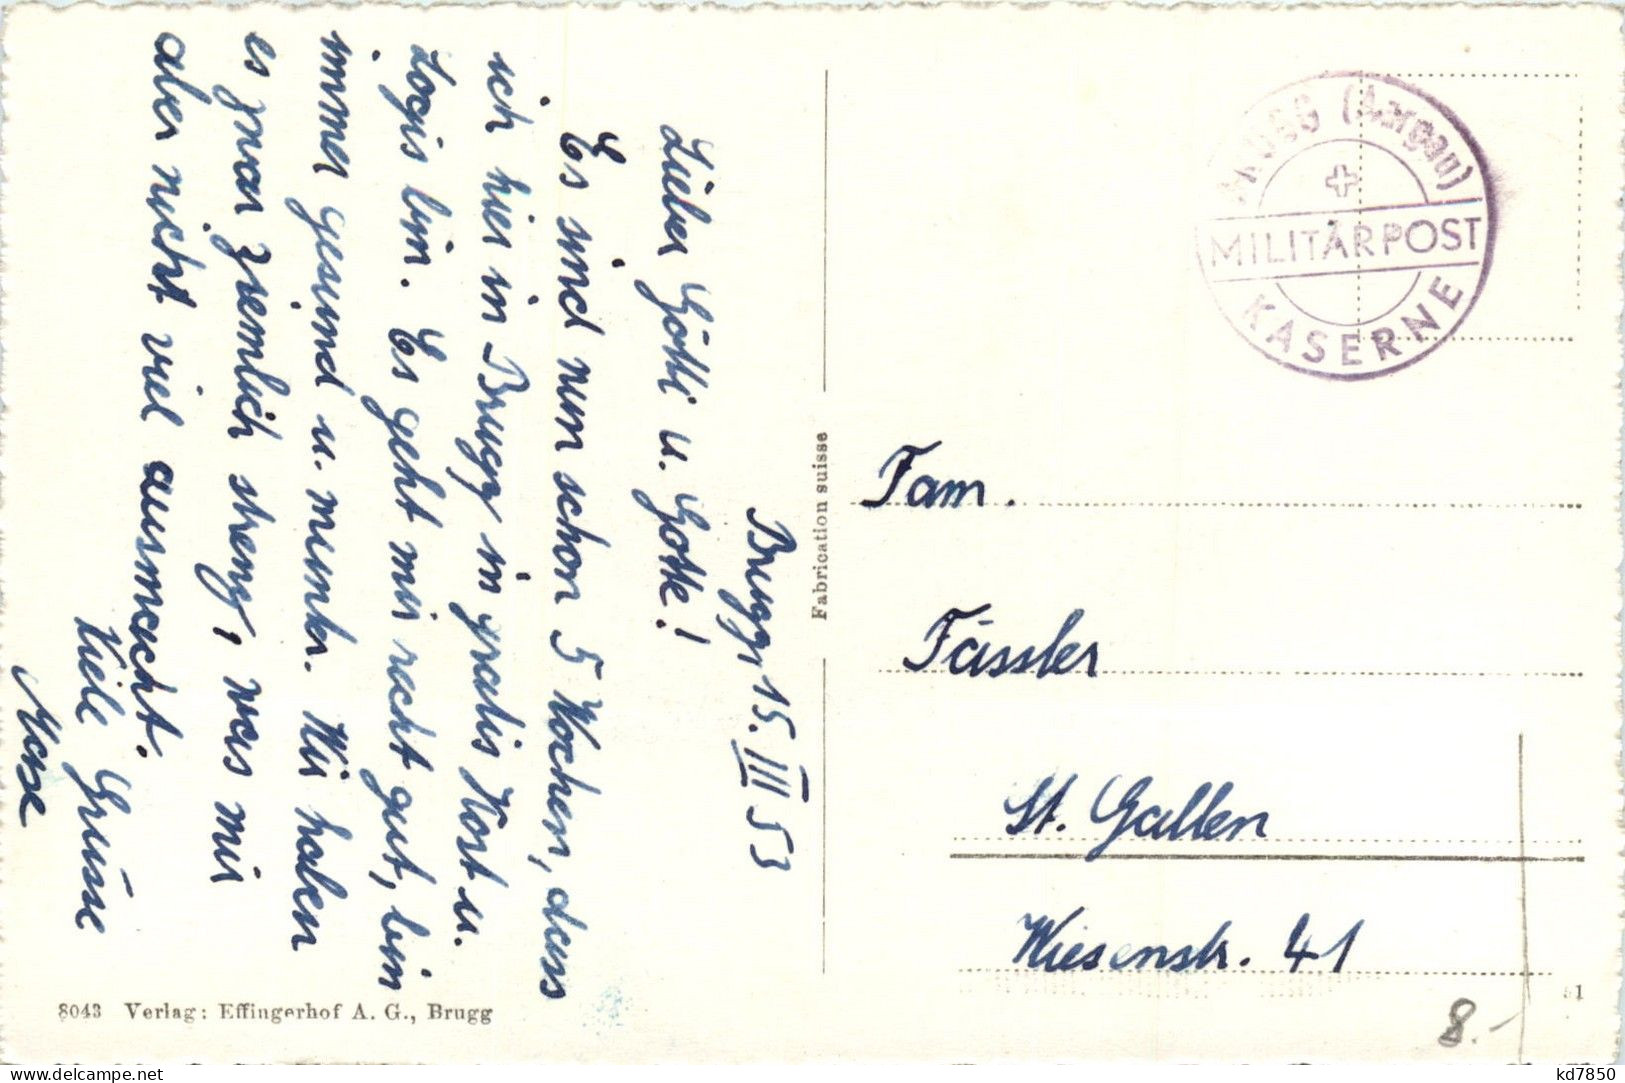 Brugg, 15. III 53
Lieber Götti u. Gotte!
Es sind nun schon 5 Wochen, dass
ich hier in Brugg in gratis Kost u.
Logis bin. Es geht mir recht gut, bin
immer gesund u. munter. Wir haben
es zwar ziemlich streng, was mir
aber nicht viel ausmacht.
Viele Grüsse
8043 Verlag: Effingerhof A. G., Brugg
Fabrication suisse
BRUGG (Aargau)
MILITÄRPOST
KASERNE
Fam.
Fässler
St. Gallen
Wiesenstr. 41
51
8.-
www.delcampe.net
kd7850